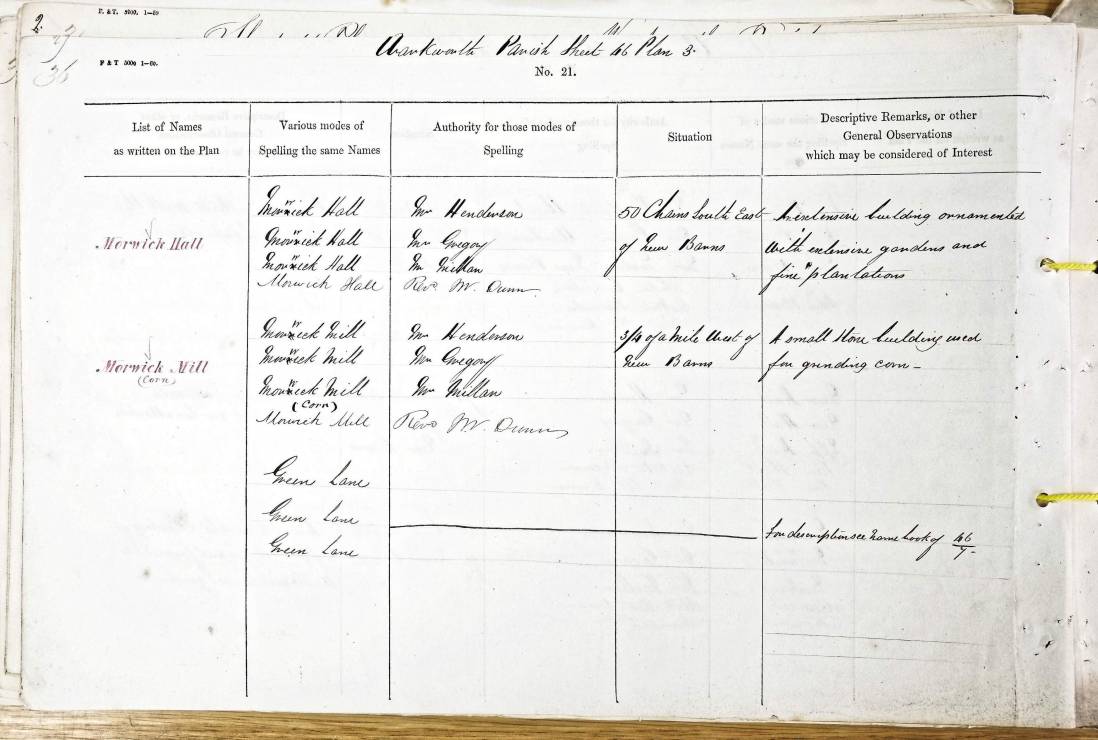 2
P. & T. 5000. 1—59
37
36
P & T 5000 1—59.
Warkworth Parish Sheet 46 Plan 3
No. 21.
List of Names
as written on the Plan
Various modes of
Spelling the same Names
Authority for those modes of
Spelling
Situation
Descriptive Remarks, or other
General Observations
which may be considered of Interest
Morwick Hall
Morwick Hall
Morwick Hall
Morwick Hall
Morwick Hall
Mr Henderson
Mr Gregory
Mr Millan
Revd. W. Dunn
50 Chains South East
of New Barns
An extensive building ornamented
with extensive gardens and
fine plantations
Morwick Mill
(Corn)
Morwick Mill
Morwick Mill
Morwick Mill
(Corn)
Morwick Mill
Mr Henderson
Mr Gregory
Mr Millan
Revd W. Dunn
3/4 of a Mile West of
New Barns
A small stone building used
for grinding corn -
Green Lane
Green Lane
Green Lane
For description see Name book of 46/7